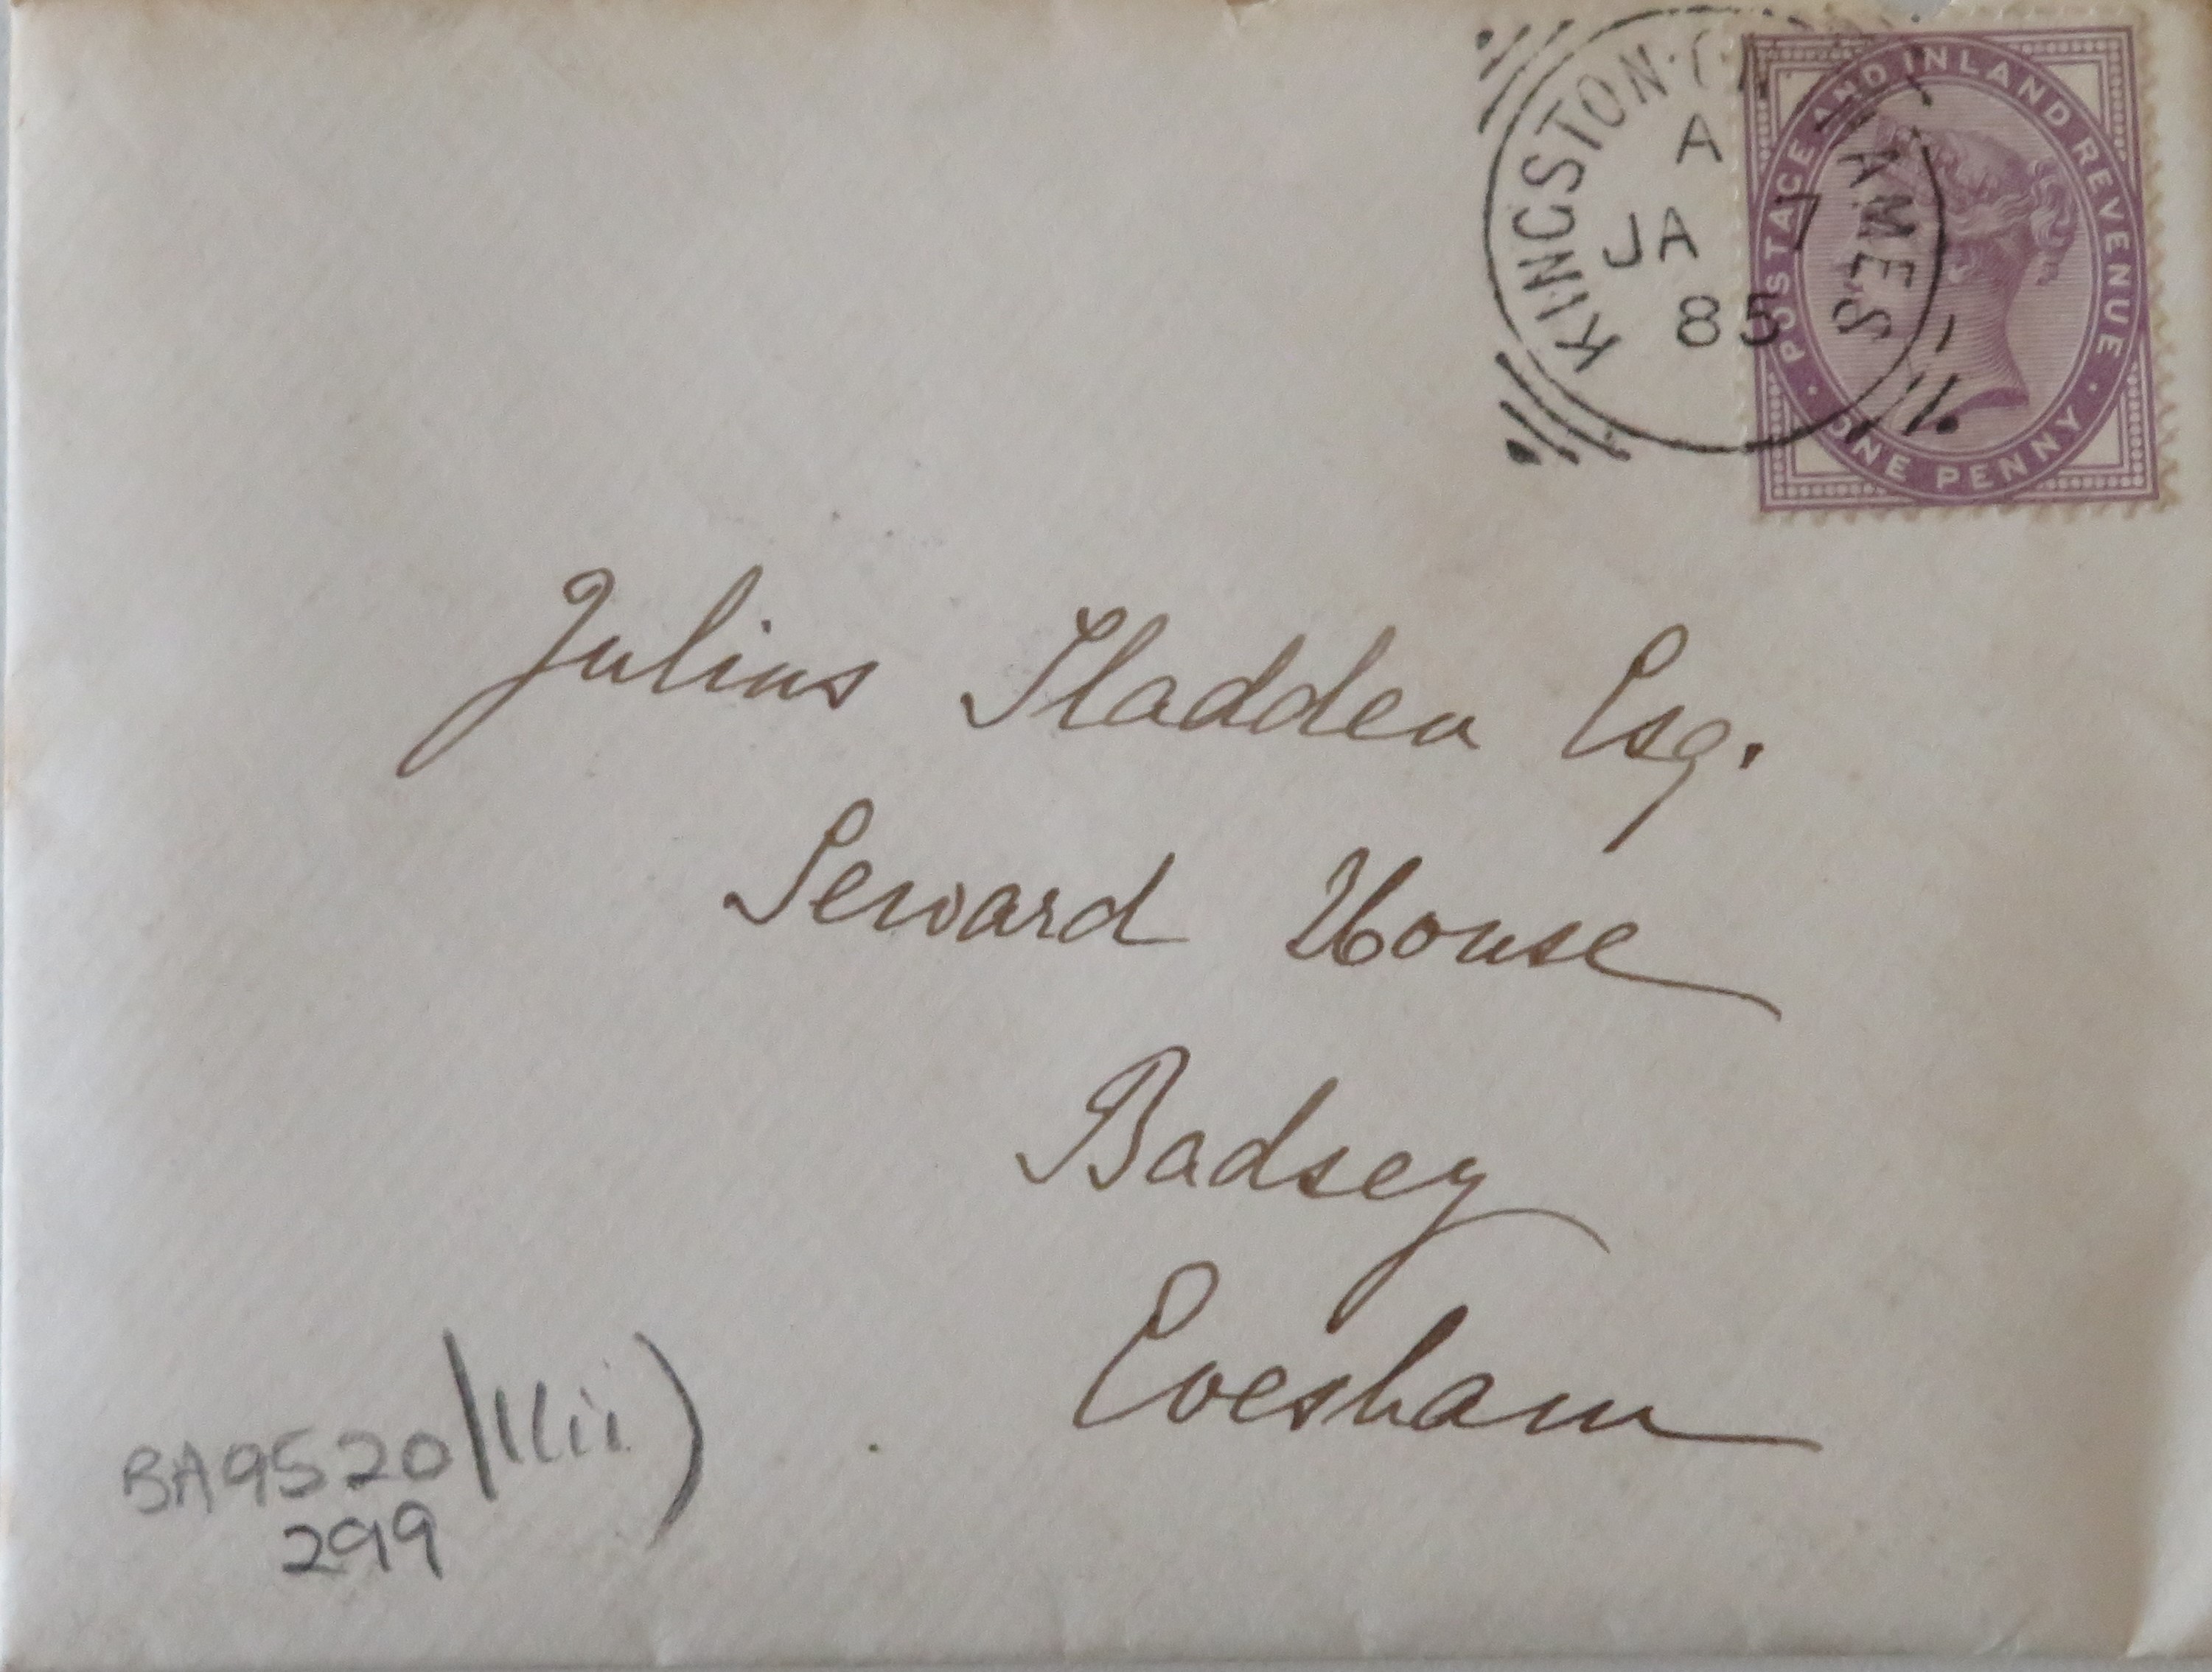 KINGSTON AMES
A
JA 7
85
POSTAGE AND INLAND REVENUE
ONE PENNY
Julius Sladden Esq.
Seward House
Badsey
Evesham
BA9520/1(ii)
299